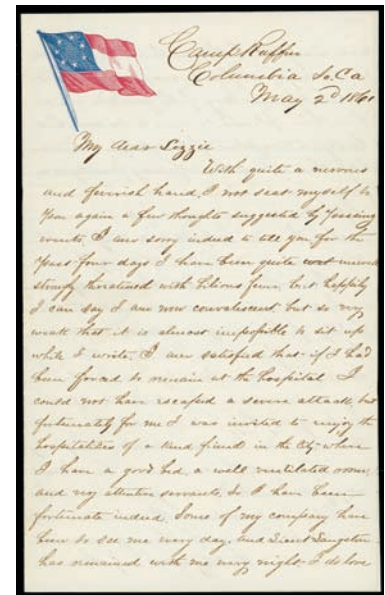 Camp Ruffin
Columbia So. Ca
May 2d 1861
My dear Lizzie
With quite a nervous
and feverish hand, I not seat myself to
you again a few thoughts suggested by passing
events. I am sorry indeed to tell you for the
past four days I have been quite unwell
strongly threatened with bilious fever, but happily
I can say I am now convalescent but so very
weak that it is almost impossible to sit up
while I write. I am satisfied that if I had
been forced to remain at the hospital I
could not have escaped a severe attack but
fortunately for me I was invited to enjoy the
hospitalities of a kind friend in the city where
I have a good bed, a well ventilated room,
and very attentive servants. So I have been
fortunate indeed. Some of my company have
been to see me every day, and Lieut Langston
has remained with me every night. I do love